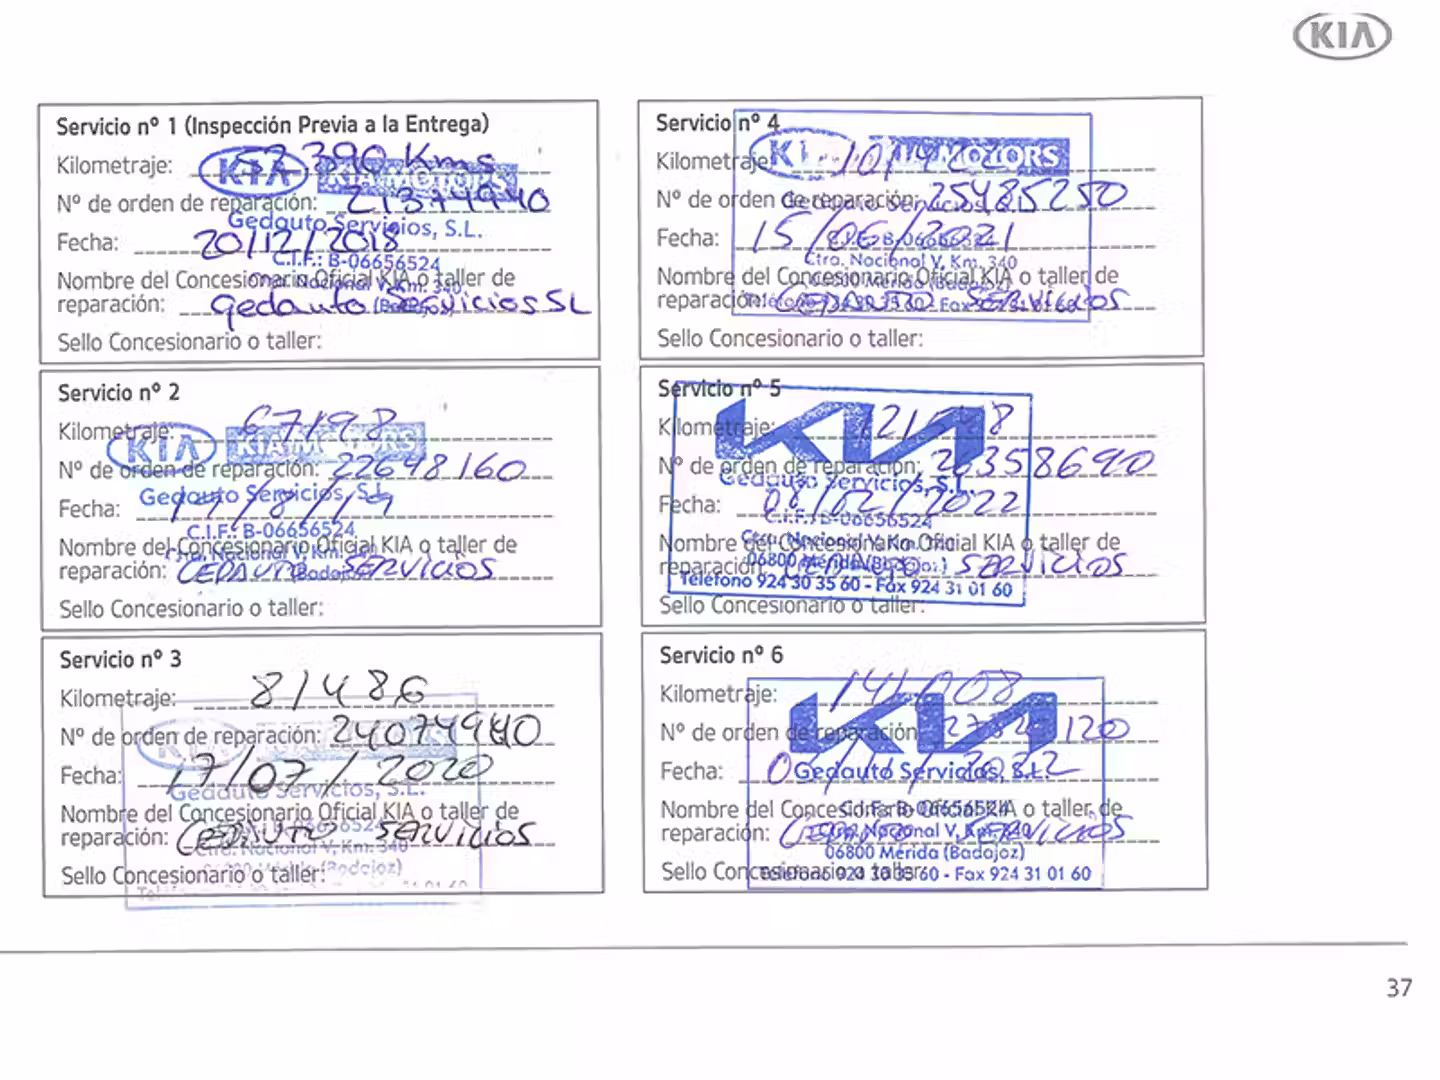 KIA
Servicio nº 1 (Inspección Previa a la Entrega)
Kilometraje: 52390 Kms
KIA KIA MOTORS
Nº de orden de reparación: 21374940
Gedauto Servicios, S.L.
Fecha: 20/12/2018
C.I.F.: B-06656524
Nombre del Concesionario Oficial KIA o taller de
Ctra. Nacional V, Km. 340
reparación: Gedauto Servicios SL
(Badajoz)
Sello Concesionario o taller:
Servicio nº 2
Kilometraje: 67198
KIA KIA MOTORS
Nº de orden de reparación: 22648160
Gedauto Servicios, S.L.
Fecha: /8/19
C.I.F.: B-06656524
Nombre del Concesionario Oficial KIA o taller de
Ctra. Nacional V, Km. 340
reparación: GEDAUTO SERVICIOS
(Badajoz)
Sello Concesionario o taller:
Servicio nº 3
Kilometraje: 81486
Nº de orden de reparación: 24074940
KIA MOTORS
Fecha: 17/07/2020
Gedauto Servicios, S.L.
Nombre del Concesionario Oficial KIA o taller de
reparación: GEDAUTO SERVICIOS
Ctra. Nacional V, Km. 340
Sello Concesionario o taller:
06800 Mérida (Badajoz)
Servicio nº 4
Kilometraje: 101420
KIA KIA MOTORS
Nº de orden de reparación: 25485250
Gedauto Servicios, S.L.
Fecha: 15/06/2021
C.I.F.: B-06656524
Ctra. Nacional V, Km. 340
Nombre del Concesionario Oficial KIA o taller de
06800 Mérida (Badajoz)
reparación: GEDAUTO SERVICIOS
Teléfono 924 30 35 60 - Fax 924 31 01 60
Sello Concesionario o taller:
Servicio nº 5
KIA
Kilometraje:
Nº de orden de reparación: 26358690
Gedauto Servicios, S.L.
Fecha: 08/02/2022
C.I.F.: B-06656524
Nombre del Concesionario Oficial KIA o taller de
Ctra. Nacional V, Km. 340
reparación: GEDAUTO SERVICIOS
06800 Mérida (Badajoz)
Teléfono 924 30 35 60 - Fax 924 31 01 60
Sello Concesionario o taller:
Servicio nº 6
Kilometraje: 141008
KIA
Nº de orden de reparación:
Fecha:
Gedauto Servicios, S.L.
Nombre del Concesionario Oficial KIA o taller de
C.I.F.: B-06656524
reparación: GEDAUTO SERVICIOS
Ctra. Nacional V, Km. 340
06800 Mérida (Badajoz)
Sello Concesionario o taller:
Teléfono 924 30 35 60 - Fax 924 31 01 60
37